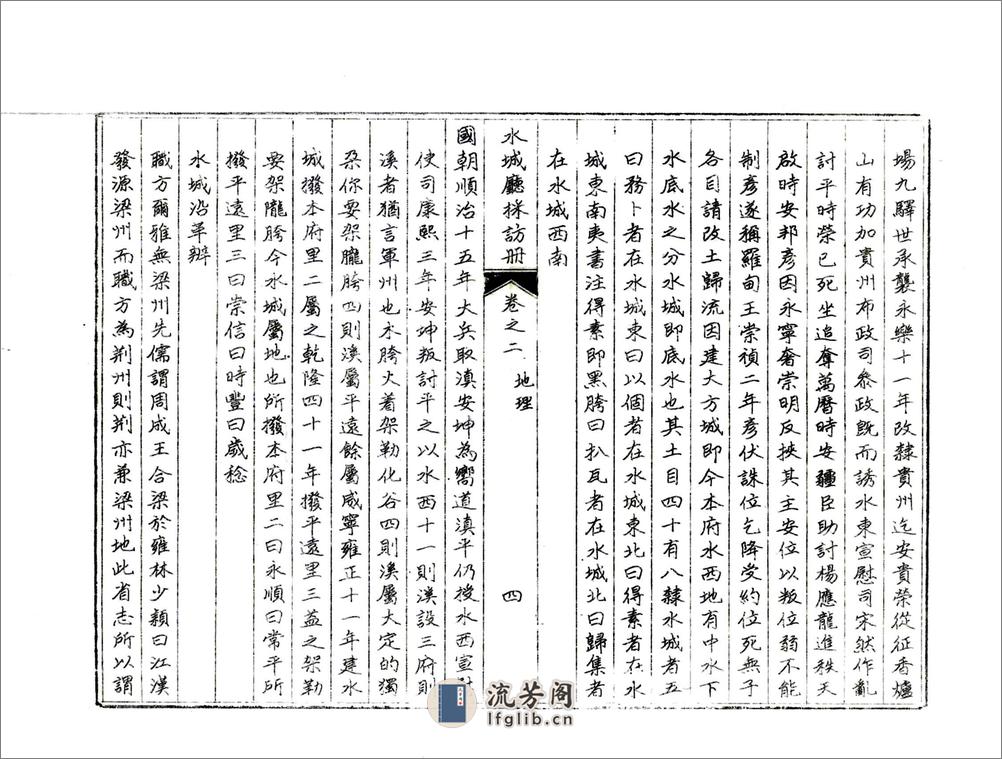 場九驛世承襲永樂十一年改隸貴州迄安貴榮從征香爐
山有功加貴州布政司叅政旣而誘水東宣慰司宋然作亂
討平時榮已死坐追奪萬曆時安疆臣助討楊應龍進秩天
啟時安邦彥因永寧奢崇明反挾其主安位以叛位弱不能
制彥遂稱羅甸王崇禎二年彥伏誅位乞降受約位死無子
各目請改土歸流因建大方城即今本府水西地有中水下
水底水之分水城即底水也其土目四十有八隸水城者五
曰務卜者在水城東曰以個者在水城東北曰得素者在水
城東南夷書注得素即黑胯曰扒瓦者在水城北曰歸集者
在水城西南
水城廳採訪冊 卷之二 地理 四
國朝順治十五年大兵取滇安坤為嚮道滇平仍授水西宣慰
使司康熙三年安坤叛討平之以水西十一則溪設三府則
溪者猶言軍州也木胯火著架勒化谷四則溪屬大定的獨
朵你要架隴胯四則溪屬平遠餘屬威寧雍正十一年建水
城撥本府里二屬之乾隆四十一年撥平遠里三益之架勒
要架隴胯今水城屬地也所撥本府里二曰永順曰常平所
撥平遠里三曰崇信曰時豐曰歲稔
水城沿革辨
職方爾雅無梁州先儒謂周成王合梁於雍林少穎曰江漢
發源梁州而職方為荆州則荆亦兼梁州地此省志所以謂
流芳阁
lfglib.cn